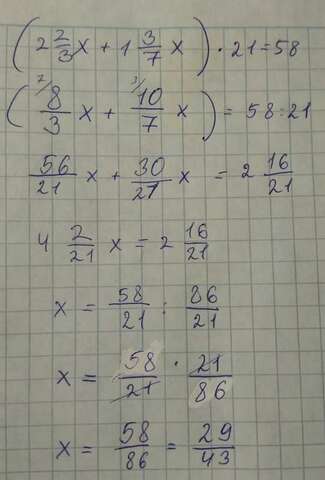 (2 2/3 x + 1 3/7 x) · 21 = 58
(⁷/ 8/3 x + ³/ 10/7 x) = 58 : 21
56/21 x + 30/21 x = 2 16/21
4 2/21 x = 2 16/21
x = 58/21 : 86/21
x = 58/21 · 21/86
x = 58/86 = 29/43